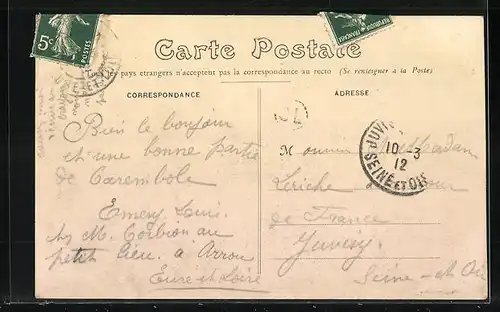 5c
POSTES
REPUBLIQUE FRANCAISE
Carte Postale
Tous les pays etrangers n'acceptent pas la correspondance au recto (Se renseigner a la Poste)
CORRESPONDANCE
ADRESSE
Bien le bonjour
et une bonne partie
de Carembole
Emery Louis
chz M. Corbion au
petit lieu a Arrou
Eure et Loire
JUVIS
10 -3
12
SEINE ET OISE
Monsieur Madam
Leriche
de France
Juvisy
Seine et Oi